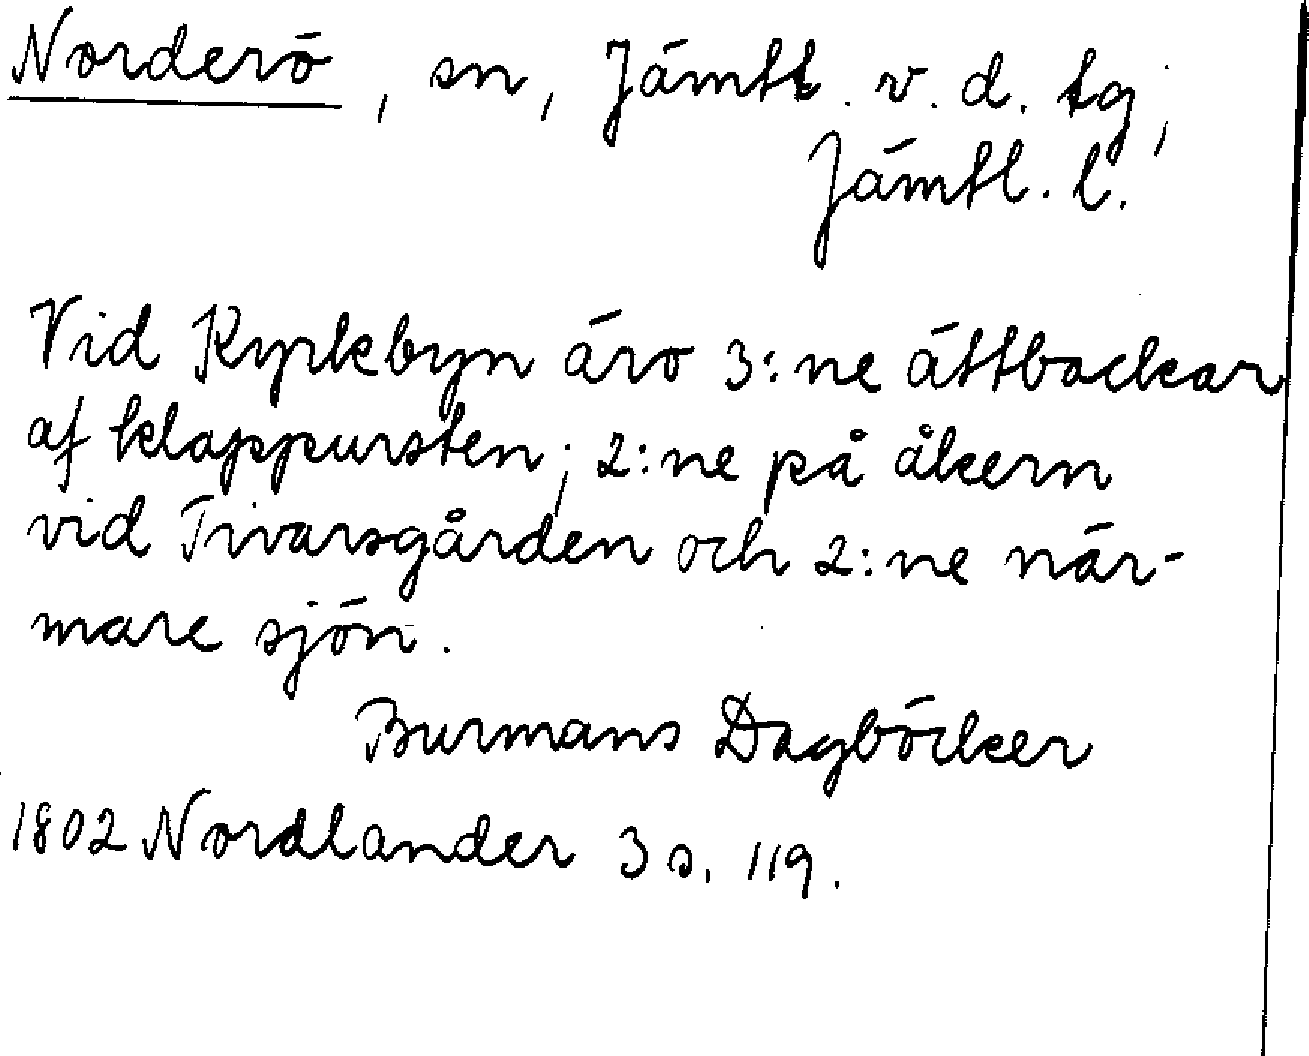 Norderö, sn, Jämtl. v. d. tg,
Jämtl. l.
Vid Kyrkbyn äro 3:ne ättbackar
af klappursten; 2:ne på åkern
vid Tivarsgården och 2:ne när-
mare sjön.
Burmans Dagböcker
1802 Nordlander 3 s. 119.